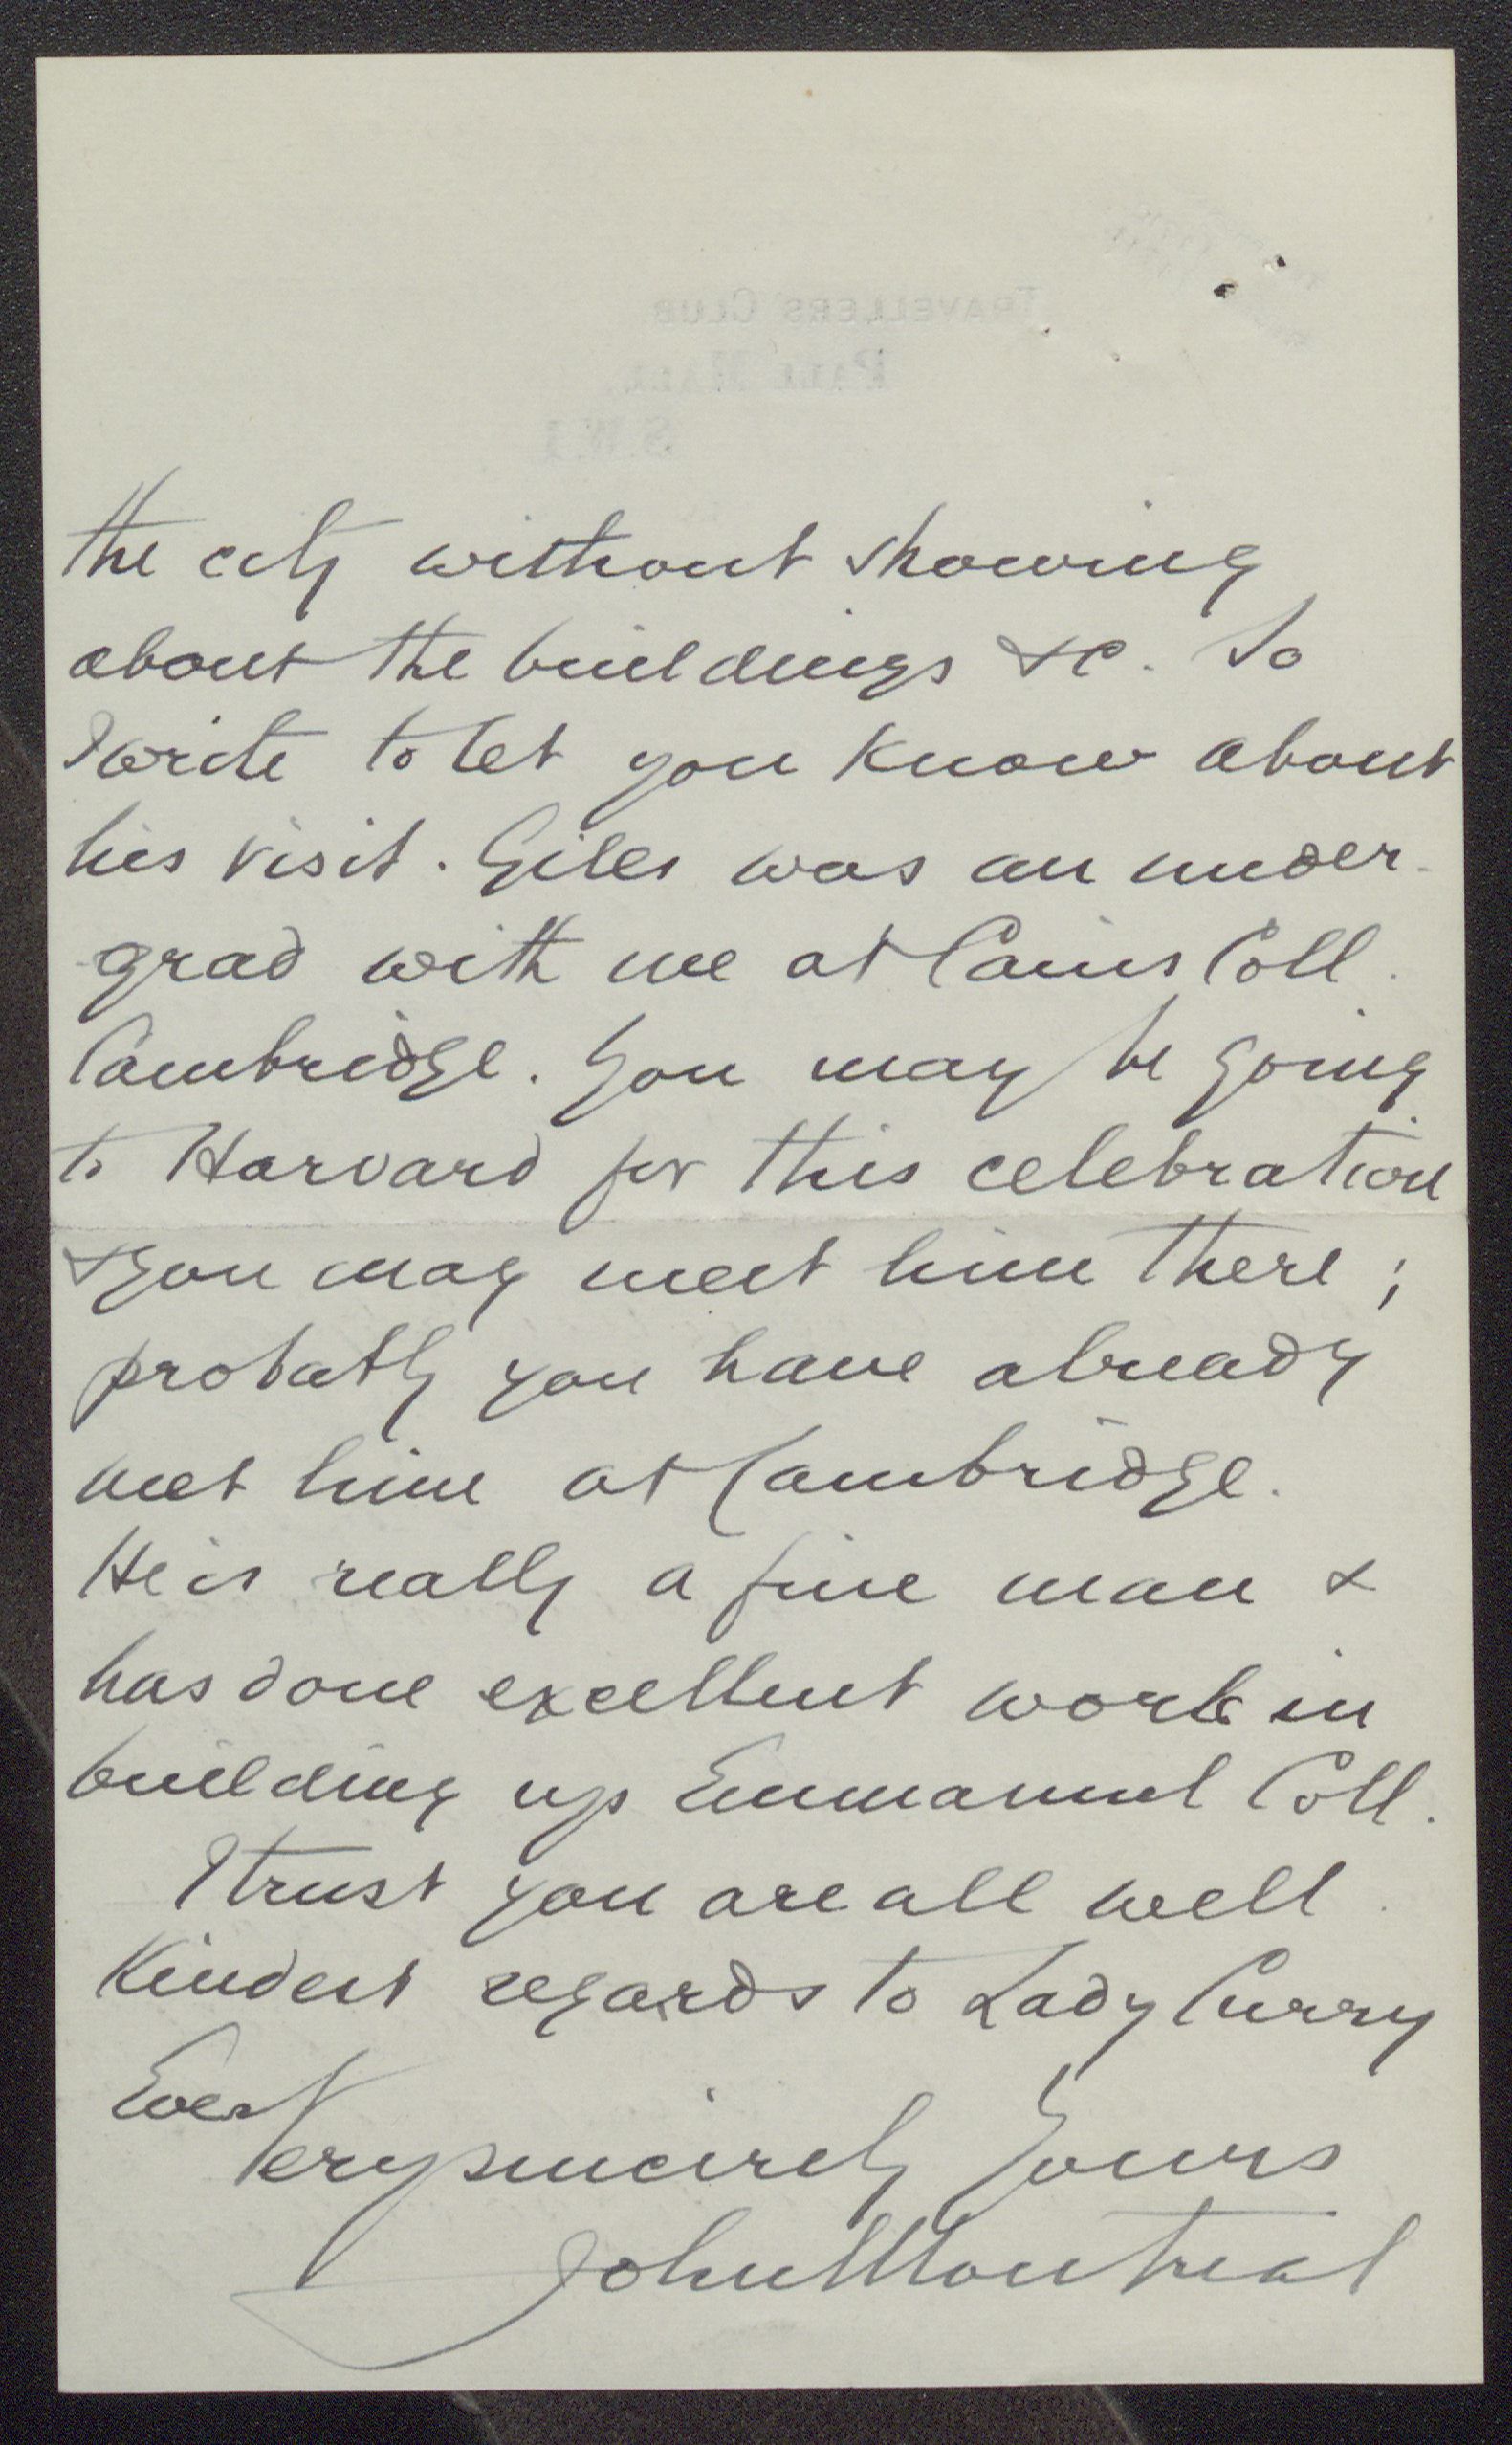 TRAVELLERS CLUB
PALL MALL,
S.W.1
the city without showing
about the buildings &c. So
I write to let you know about
his visit. Giles was an under-
grad with me at Caius Coll.
Cambridge. You may be going
to Harvard for this celebration
& you may meet him there;
probably you have already
met him at Cambridge.
He is really a fine man &
has done excellent work in
building up Emmanuel Coll.
I trust you are all well.
Kindest regards to Lady Curry
Ever
Very sincerely Yours
John Montreal